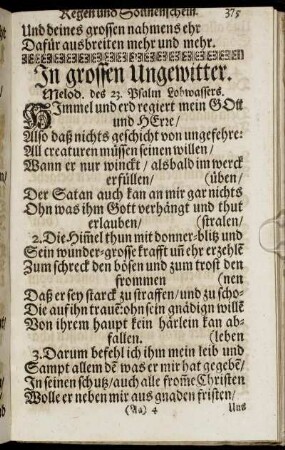 Regen und Sonnenschein. 375
Und deines grossen nahmens ehr
Dafür ausbreiten mehr und mehr.
In grossen Ungewitter.
Melod. des 23. Psalm Lobwassers.
HImmel und erd regiert mein GOtt
und HErre/
Also daß nichts geschicht von ungefehre:
All creaturen müssen seinen willen/
Wann er nur winckt/ alsbald im werck
erfüllen/ (üben/
Der Satan auch kan an mir gar nichts
Ohn was ihm Gott verhängt und thut
erlauben/ (stralen/
2. Die Him̃el thun mit donner-blitz und
Sein wunder-grosse krafft un̄ ehr erzehlē
Zum schreck den bösen und zum trost den
frommen (nen
Daß er sey starck zu straffen/ und zu scho-
Die auf ihn traue: ohn sein gnädign willē
Von ihrem haupt kein härlein kan ab-
fallen. (leben
3. Darum befehl ich ihm mein leib und
Sampt allem dē was er mir hat gegebē/
In seinen schutz/ auch alle from̄e Christen
Wolle er neben mir aus gnaden fristen/
(Aa) 4 Uns